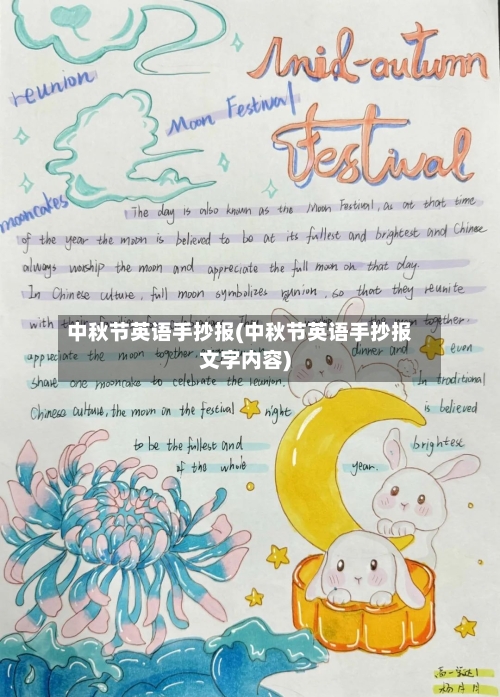 Mid-autumn
reunion
Moon Festival
Festival
mooncakes
The day is also known as the Moon Festival, as at that time
of the year the moon is believed to be at its fullest and brightest and Chinese
always worship the moon and appreciate the full moon on that day.
In Chinese culture, full moon symbolizes reunion, so that they reunite
with their
together
中秋节英语手抄报(中秋节英语手抄报
文字内容)
appreciate the moon together. dinner and even
share one mooncake to celebrate the reunion. In traditional
Chinese culture, the moon on the festival night is believed
to be the fullest and brightest
of the whole year.